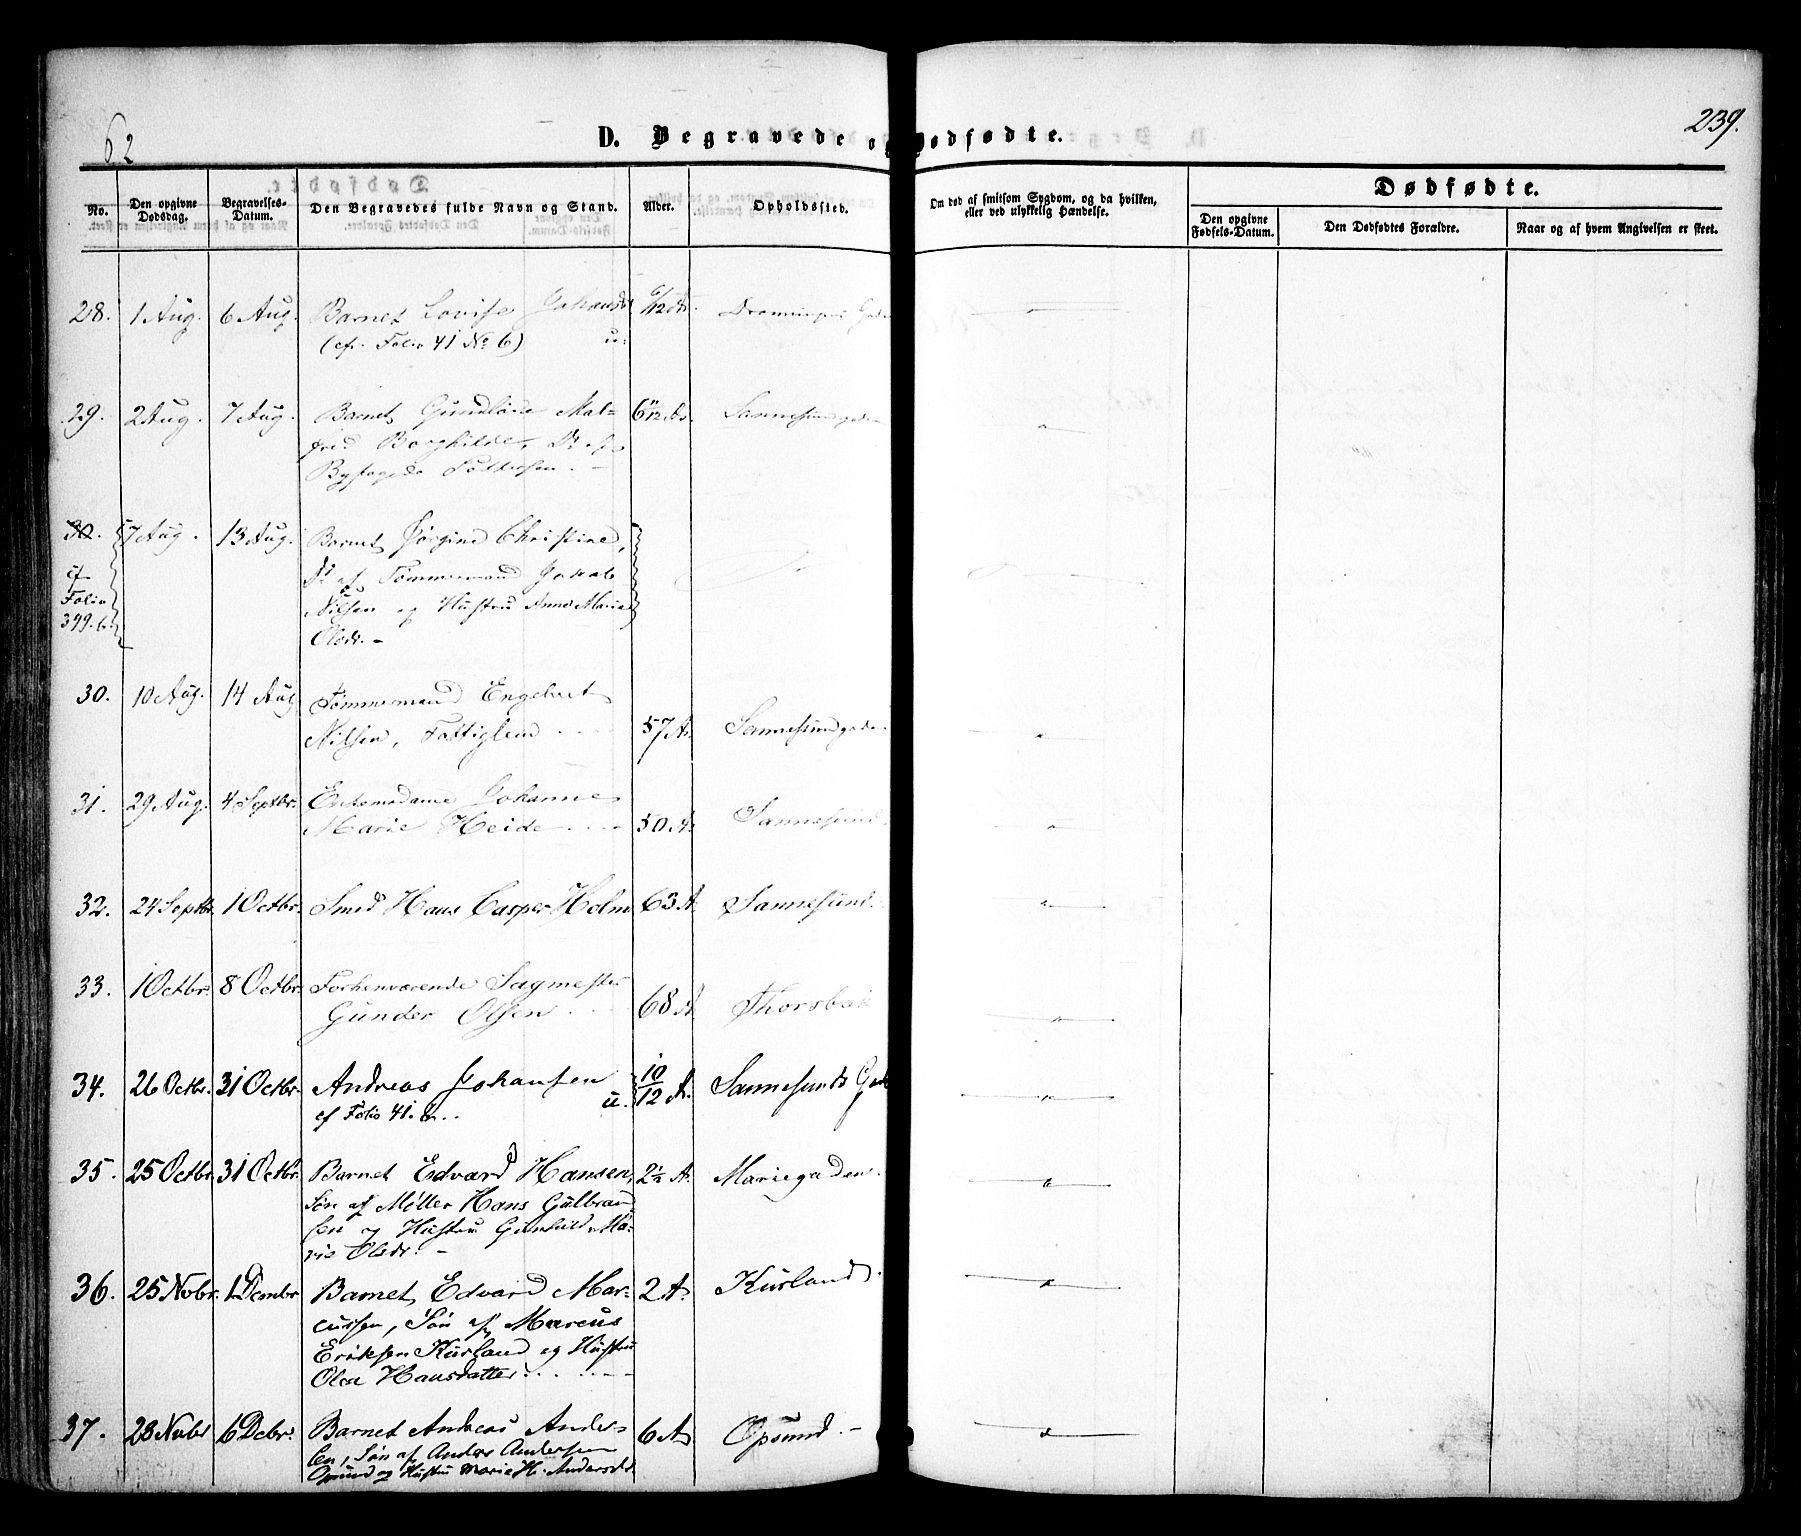 62
239.
D. Begravede og Dødfødte.
No.
Den opgivne Dødsdag.
Begravelses-Datum.
Den Begravedes fulde Navn og Stand.
Alder.
Opholdssted.
Om død af smitsom Sygdom, og da hvilken, eller ved ulykkelig Hændelse.
Dødfødte.
Den opgivne Fødsels-Datum.
Den Dødfødtes Forældre.
Naar og af hvem Angivelsen er skeet.
28. 1 Aug. 6 Aug. Barnet Lovise Johansdr 6/12 A.
(cf. Folio 41 No 6) u.
29. 2 Aug. 7 Aug. Barnet Mal- 6 11/12 A. Sannesundgaden
fred Borghilde, Dr af
Byfoged
30. 7 Aug. 13 Aug. Barnet Jørgine Christine,
cf Dr af Tømmermand Jakob
Folio Nilsen og Hustru Anne Marie
399. b. Olsdr. -
30. 10 Aug. 14 Aug Tømmermand Engebret
Nilsen, Fattiglem 57 A. Sannesundgaden
31. 29 Aug. 4 Septbr. Enkemadame Johanne
Marie Heide 50 A. Sannesund.
32. 24 Septbr. 1 Octbr. Smed Hans Casper Holm 63 A. Sannesund.
33. 1 Octbr. 8 Octbr. Forhenværende Sagmester
Gunder Olsen 68 A. Thorsbak
34. 26 Octbr. 31 Octbr. Andreas Johansen 10/12 A. Sannesunds Gad
cf Folio 41. u.
35. 25 Octbr. 31 Octbr. Barnet Edvard Hansen, 2½ A. Mariegaden.
Søn af Møller Hans Gulbrand
sen og Hustru Gunhild Ma-
rie Olsdr. -
36. 25 Nobr. 1 Dcmbr Barnet Edvard Mar- 2 A. Kurland.
cussen, Søn af Marcus
Eriksen Kurland og Hustru
Olea Hansdatter.
37. 28 Nobr 6 Debr. Barnet AndreasAnder- 6 A Opsund. -
sen, Søn af Anders Andersen
Opsund og Hustru Marie H. Andersdr.